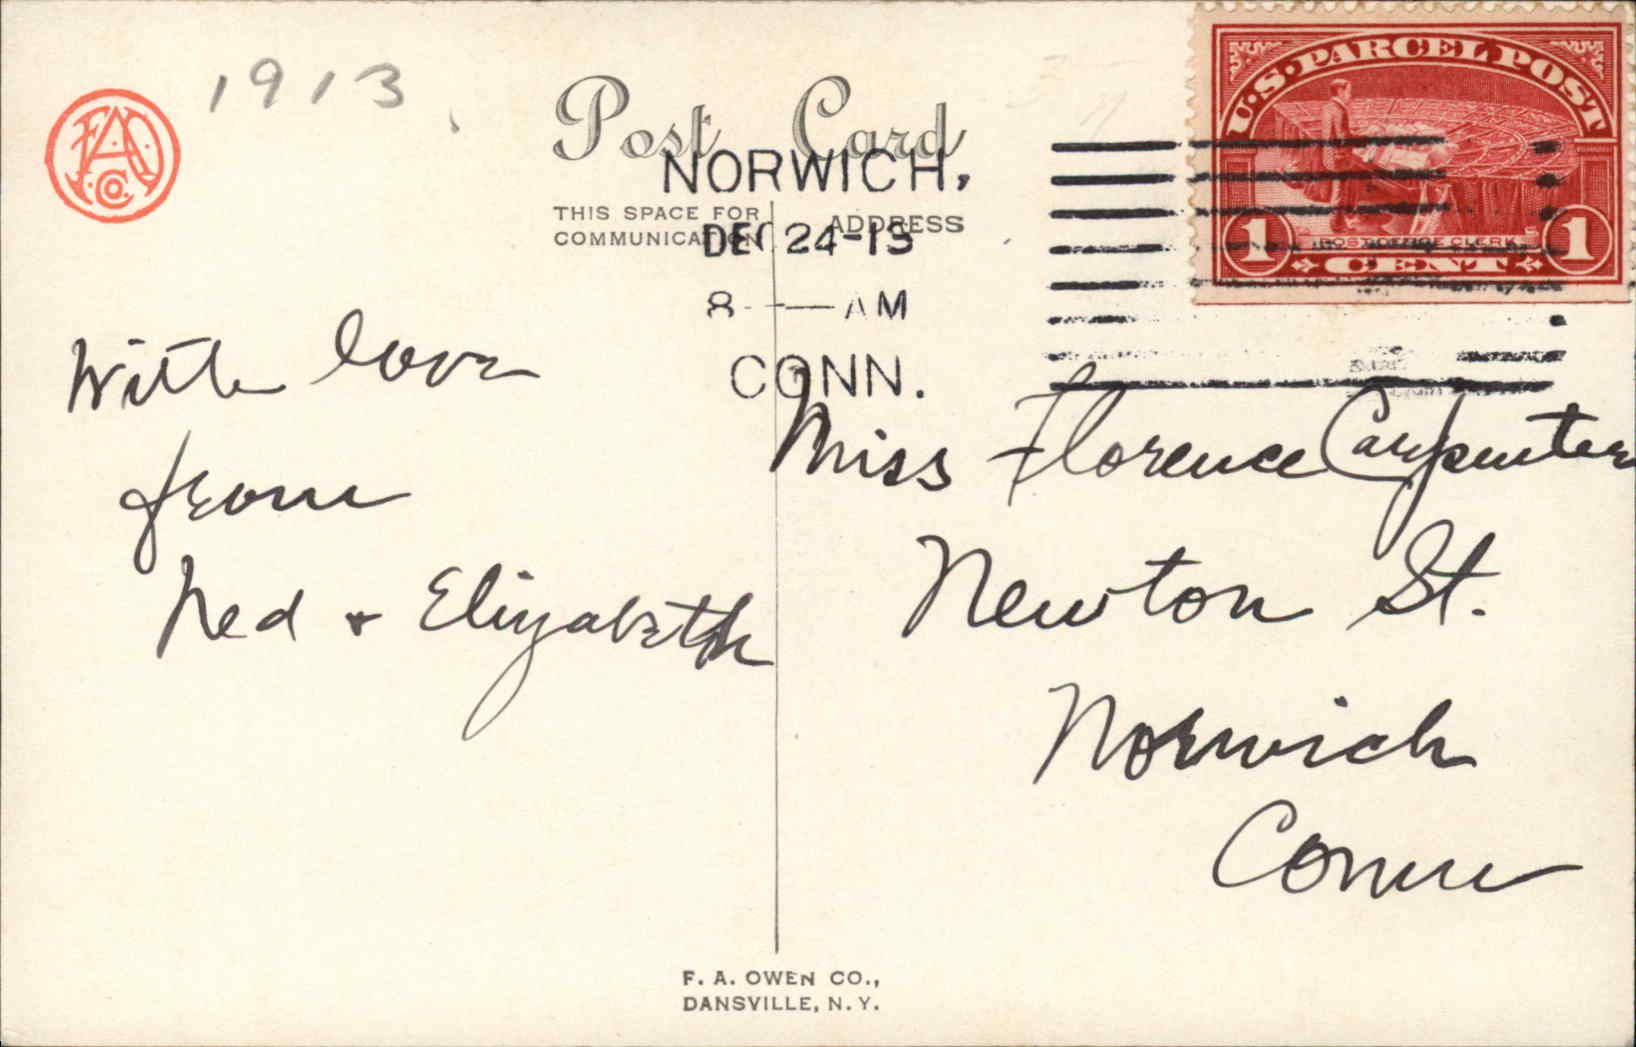 1913
FAO
Co.
Post Card
U.S. PARCEL POST
1 1
POST OFFICE CLERK
CENT
NORWICH,
DEC 24-13
8 — AM
CONN.
THIS SPACE FOR
COMMUNICATION
ADDRESS
With love
from
Ned + Elizabeth
Miss Florence Carpenter
Newton St.
Norwich
Conn
F. A. OWEN CO.,
DANSVILLE, N. Y.